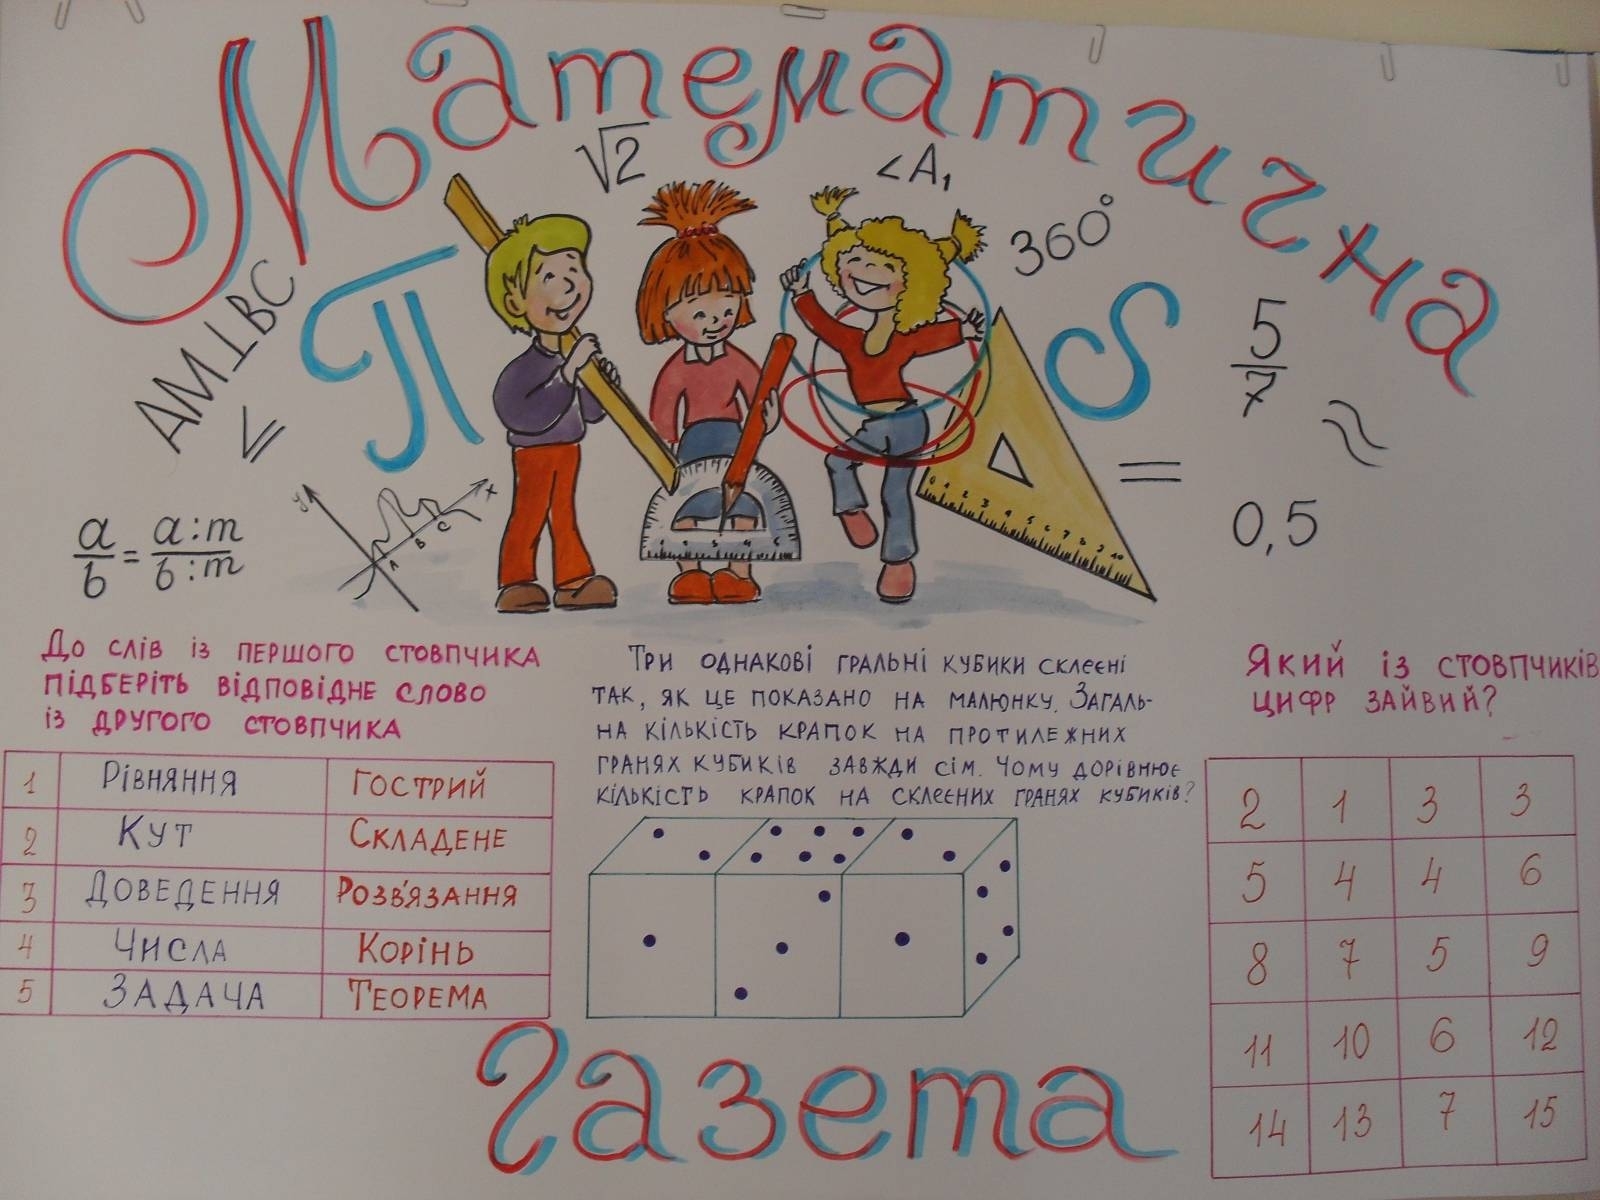 Математична
√2
<A₁
360°
AM⊥BC
П
S
≤
5/7
≈
=
0,5
a/b = a:m/b:m
y
x
A B C
0 1 2 3 4 5 6 7 8 9 10
До слів із першого стовпчика
підберіть відповідне слово
із другого стовпчика
1 Рівняння гострий
2 Кут Складене
3 Доведення Розв'язання
4 Числа Корінь
5 Задача Теорема
Три однакові гральні кубики склеєні
так, як це показано на малюнку. Загаль-
на кількість крапок на протилежних
гранях кубиків завжди сім. Чому дорівнює
кількість крапок на склеєних гранях кубиків?
Який із стовпчиків
цифр зайвий?
2 1 3 3
5 4 4 6
8 7 5 9
11 10 6 12
14 13 7 15
Газета